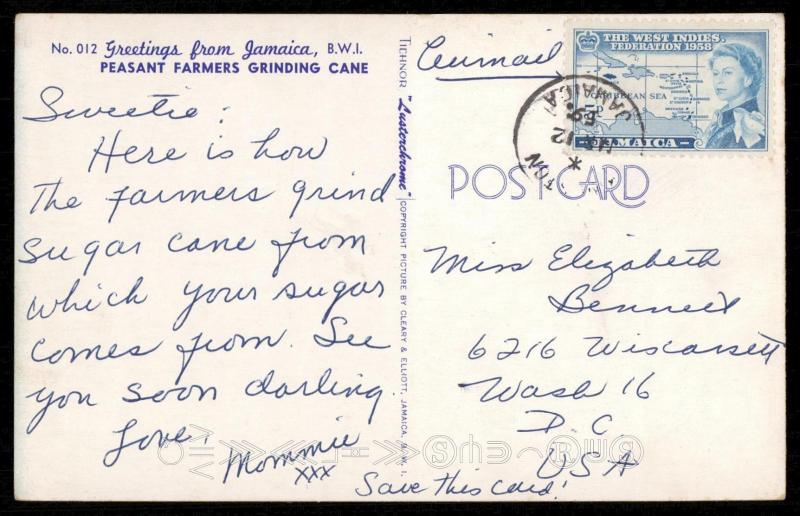 No. 012 Greetings from Jamaica, B.W.I.
PEASANT FARMERS GRINDING CANE
Sweetie:
Here is how
The farmers grind
sugar cane from
which your sugar
comes from. See
you soon darling.
Love,
Mommie
xxx
Save this card!
TICHNOR "Lusterchrome" COPYRIGHT PICTURE BY CLEARY & ELLIOTT, JAMAICA, B.W.I.
Airmail
THE WEST INDIES
FEDERATION 1958
CARIBBEAN SEA
JAMAICA
TON
JAMAICA
12
59
POSTCARD
Miss Elizabeth
Bennett
6216 Wiscassett
Wash 16
D.C
USA